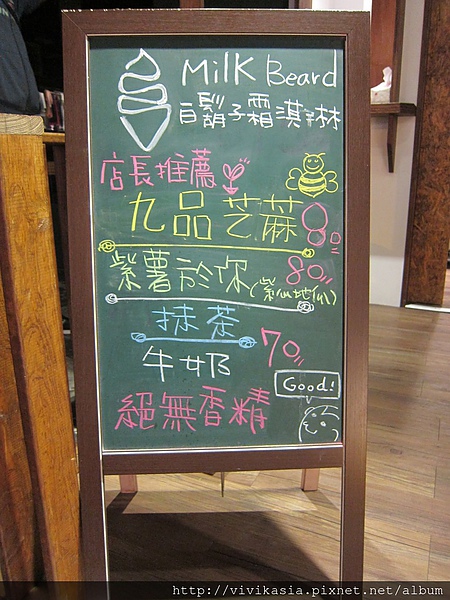 Milk Beard
白鬍子霜淇淋
店長推薦
九品芝蔴 80
紫薯於你(紫心地瓜) 80
抹茶
牛奶 70
Good!
絕無香精
http://vivikasia.pixnet.net/album